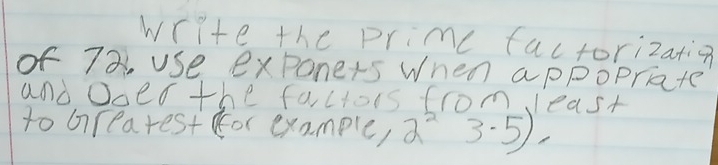 Write the prime factorization
of 72. use exponets when appopriate
and Oder the factors from least
to Greatest (for example, 2² 3·5).